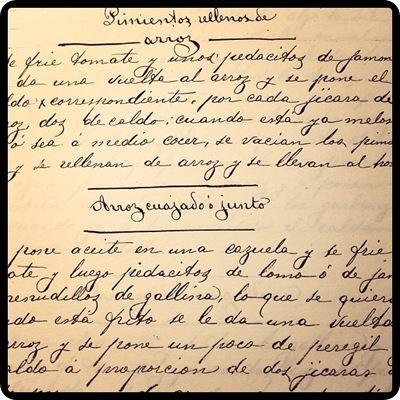 Pimientos rellenos de
arroz
e frie tomate y unos pedacitos de jamon
da una vuelta al arroz y se pone el
ldo correspondiente, por cada jicara de
oz, dos de caldo; cuando está ya melos
ó sea á medio cocer, se vacian los pimi
y se rellenan de arroz y se llevan al ho
Arroz cuajado ó junto
pone aceite en una cazuela y se frie
ate y luego pedacitos de lomo ó de jam
menudillos de gallina, lo que se quiera
ndo está frito se le da una vuelta
arroz y se pone un poco de peregil
aldo á proporcion de dos jicaras d